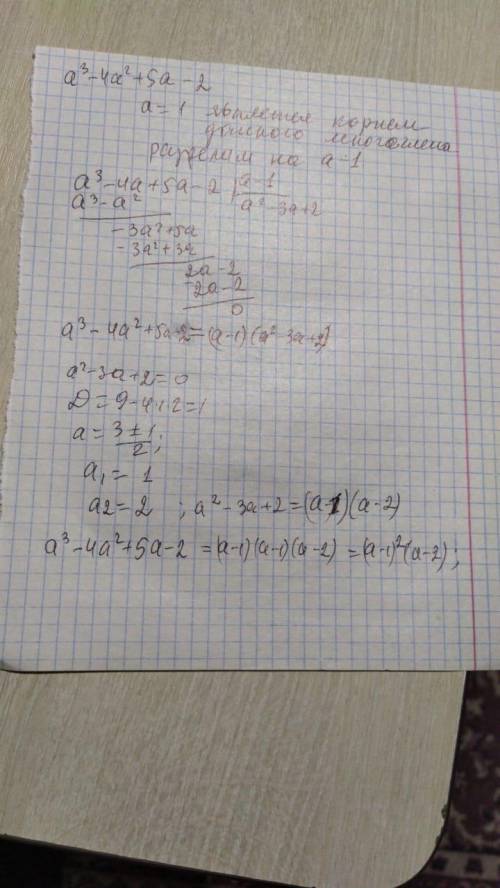 a³-4a²+5a-2
a=1 является корнем
данского многочлена
разделим на a-1
a³-4a+5a-2 | a-1
a³-a² a²-3a+2
-3a²+5a
-3a²+3a
2a-2
2a-2
0
a³-4a²+5a-2=(a-1)(a²-3a+2)
a²-3a+2=0
D=9-4·1·2=1
a=3±1/2;
a₁=1
a2=2 ; a²-3a+2=(a-1)(a-2)
a³-4a²+5a-2=(a-1)(a-1)(a-2)=(a-1)²(a-2);